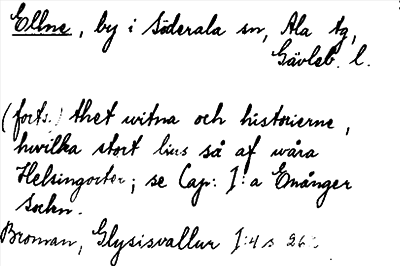 Ellne, by i Söderala sn, Ala tg,
Gävleb. l.
(forts.) thet witna och historierne,
hwilka stort lius så af wåra
Helsingorter; se Cap: I:a Enånger
Sockn.
Broman, Glysisvallur I:4 s 26